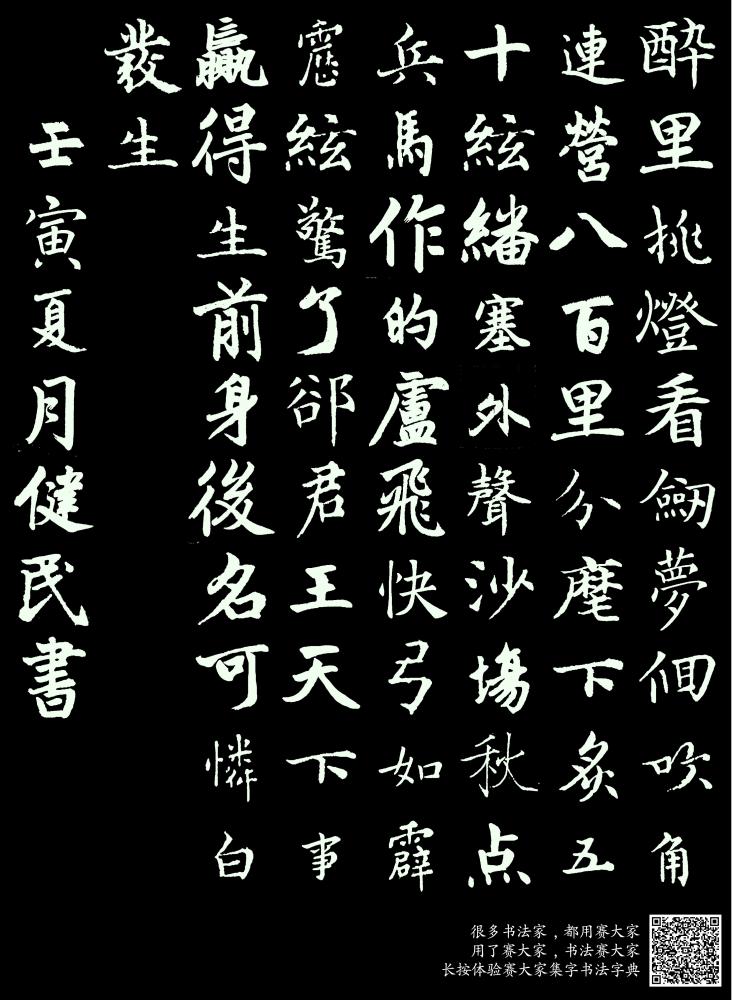 醉里挑燈看劒夢佪吹角
連營八百里分麾下炙五
十絃繙塞外聲沙場秋点
兵馬作的盧飛快弓如霹
靂絃驚了卻君王天下事
贏得生前身後名可憐白
發生
壬寅夏月健民書
很多书法家，都用赛大家
用了赛大家，书法赛大家
长按体验赛大家集字书法字典